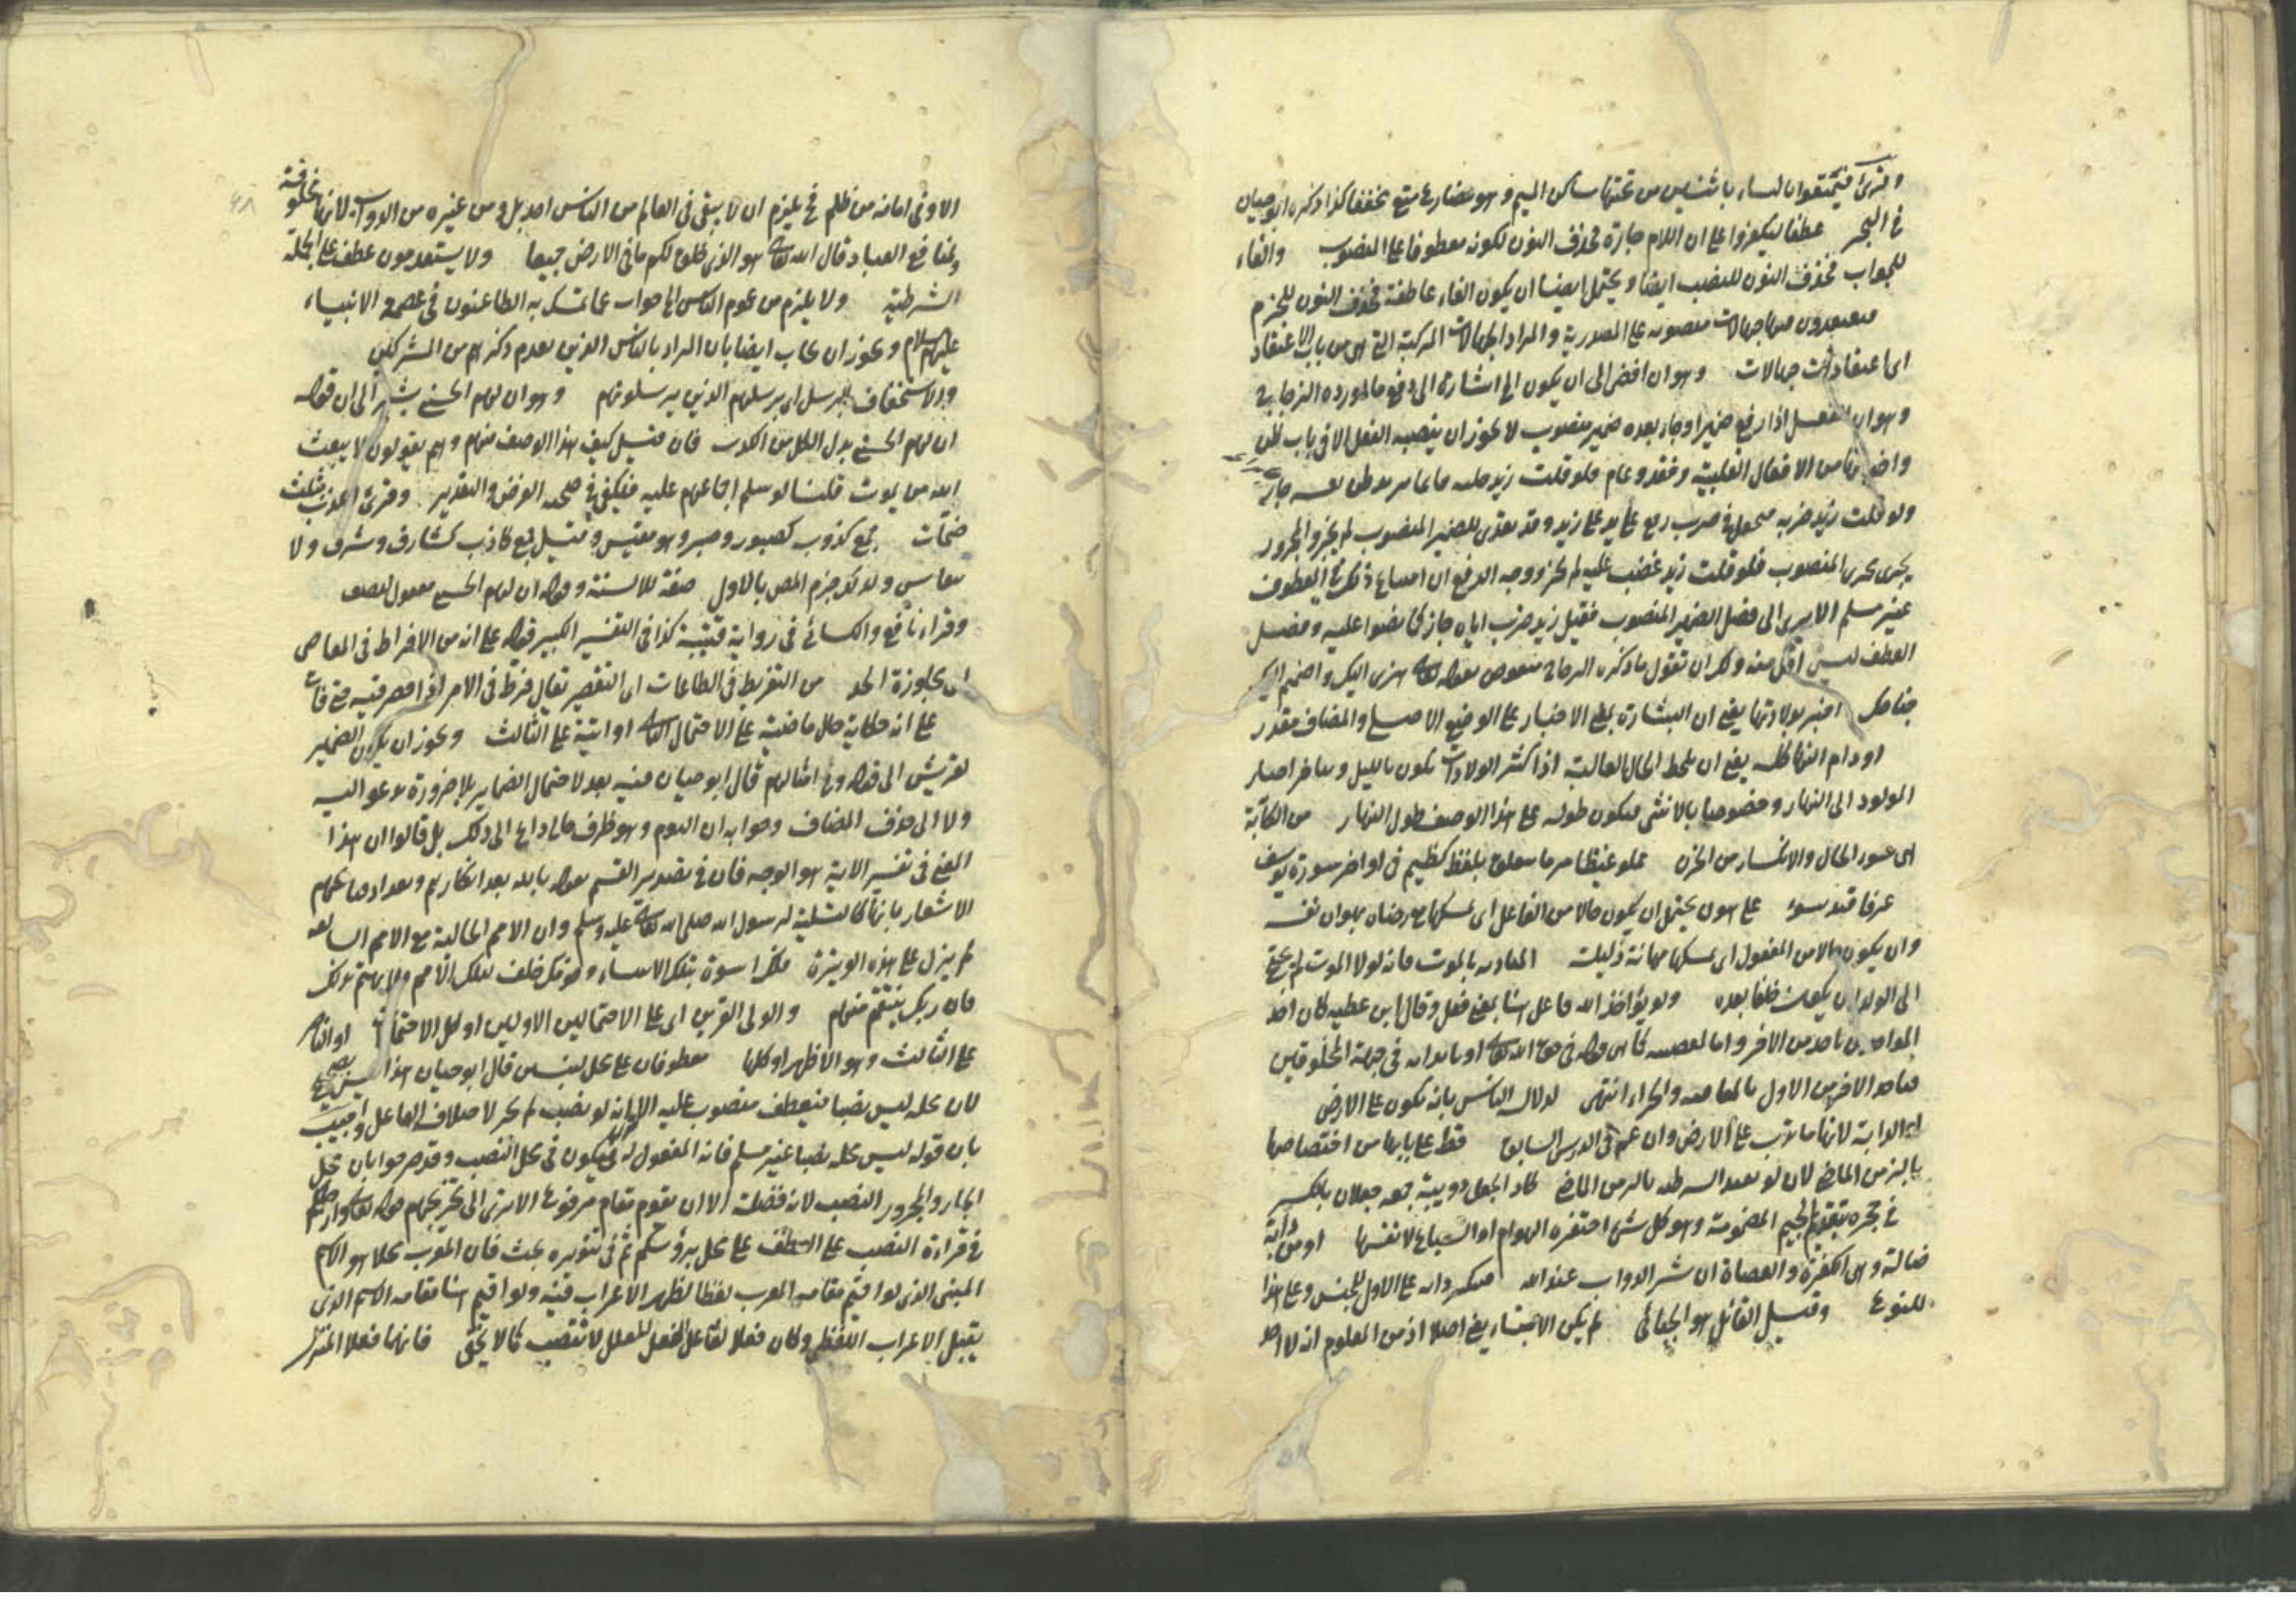 وقرئ فيمتعوا بالياء باثنتين من تحتها ساكن الميم وهو مضارع متع مخففا كذا ذكره ابو حيان
في البحر عطفا ليكفروا على ان اللام جارة فحذف النون لكونه معطوفا على المنصوب والفاء
للجواب فحذف النون للنصب ايضا ويحتمل ايضا ان يكون الفاء عاطفة فحذف النون للجزم
جهالات منصوبه على المصدرية والمراد الجهالات المركبة التى هى من باب الاعتقاد
اى اعتقادات جهالات وهو ان افضى الى ان يكون اشارة الى دفع ما اورده الزجاج
وهو ان الفعل اذا رفع ضميرا وجاء بعده ضمير منصوب لا يجوز ان ينصبه الفعل الا فى باب ظن
من الافعال القلبية وفقد وعدم فلو قلت زيد
ولو قلت زيد ضربه فى ضرب رفع عايد على زيد وقد تعدى للضمير المنصوب لم يجز والمجرور
يجرى مجرى المنصوب فلو قلت زيد غضب عليه لم يجز ووجه الدفع ان امتناع ذلك فى المعطوف
غير مسلم الا يرى الى فصل الضمير المنصوب فقيل زيد ضرب اياه جاز كما نصوا عليه وفصل
العطف ليس اقل منه ولك ان تقول ما ذكره الزجاج منقوض بقوله تعالى هزى اليك واضمم اليك
جناحك اخبر بولادتها يعنى ان البشارة بمعنى الاخبار على الوضع الاصلى والمضاف مقدر
او دام النهار كله يعنى ان يلحظ الحال الغالبة اذ اكثر الولادات تكون بالليل ويتاخر اخبار
المولود الى النهار وخصوصا بالانثى فيكون ظلوله على هذا الوصف طول النهار من الكآبة
اى سوء الحال والانكسار من الحزن مملو غيظا مر ما يتعلق بلفظ كظيم فى اواخر سورة يوسف
عرفا قيد سوء على هون يحتمل ان يكون حالا من الفاعل اى يمسكها مع رضاه بهوان نفسه
وان يكون حالا من المفعول اى يمسكها مهانة ذليلة المنادية بالموت فانه لولا الموت لم يحتج
الى الولد ان يكون خلفا بعده ولو يؤاخذ الله فاعل هنا بمعنى فعل وقال ابن عطيه كان احد
المواخذين ياخذ من الاخر واما لمعصية كما هى قوله فى حق الله تعالى او باذاية فى جهة المخلوقين
فياخذ الاخر من الاول بالمعاقبة والجزاء انتهى لدلالة الناس بانه يكون على الارض
او الدابة لانها ما تدب على الارض وان عم فى الدرس السابق قط على بابها من اختصاصها
بالزمن الماضى لان لو تفيد الشرطية بالزمن الماضى كاد الجعل دويبة جمعه جعلان بالكسر
فى جحره بتقديم الجيم المضمومة وهو كل شئ احتفره الهوام او السباع لانفسها او من دابة
ضالة وهى الكفرة والعصاة ان شر الدواب عند الله فتنكير دابة على الاول للجنس وعلى هذا
للنوع وقيل القائل هو الجبائى لم يكن الاهتداء يعنى اصلا اذ من المعلوم انه لا احد
الا وفى ابائه من ظلم فح يلزم ان لا يبقى فى العالم من الناس احد بل ومن غيره من الدواب لانها مخلوقة
لمنافع العباد قال الله تعالى هو الذى خلق لكم ما فى الارض جميعا ولا يستقدمون عطف على الجملة
الشرطية ولا يلزم من عموم الناس الى جواب عما تمسك به الطاعنون فى عصمة الانبياء
عليهم السلام ويجوز ان يجاب ايضا بان المراد بالناس الذين تقدم ذكرهم من المشركين
والاستخفاف بالرسل اى برسلهم الذين يرسلونهم وهو ان لهم الحسنى يشير الى ان قوله
ان لهم الحسنى بدل الكل من الكذب فان قيل كيف هذا الوصف منهم وهم يقولون لا يبعث
الله من يموت قلنا لو سلم اجماعهم عليه فيكفى فى صحته الفرض والتقدير وقرئ الكذب بثلث
ضمات جمع كذوب كصبور وصبر وهو مقيس وقيل جمع كاذب كشارف وشرف ولا
ينقاس ولذلك جزم المص بالاول صفة للالسنة وقوله ان لهم الحسنى مفعول لتصف
وقراء نافع والكسائى فى رواية قتيبة كذا فى التفسير الكبير قوله على انه من الافراط فى المعاصى
اى مجاوزة الحد من التفريط فى الطاعات اى التقصير يقال فرط فى الامر اذا قصر فيه حتى فات
على انه حكاية حال ماضية على الاحتمال الثانى او اتية على الثالث ويجوز ان يكون الضمير
لقريش الى قوله وفى امثالهم قال ابو حيان فيه بعد لاحتمال الضماير بلا ضرورة تدعو اليه
ولا الى حذف المضاف وجوابه ان اليوم وهو ظرف حالى داع الى ذلك بل قالوا ان هذا
المعنى فى تفسير الاية هو الوجه فان فى تصدير القسم بقوله تالله بعد انكارهم وتعداد قبايحهم
الاشعار بانها كالتسلية لرسول الله صلى الله تعالى عليه وسلم وان الامم الخالية مع الامم السالفة
لم يزل على هذه الوتيرة فلك اسوة بتلك الانبياء وقومك خلف لتلك الامم ولا يهتم بذلك
فان ربك ينتقم منهم والولى القرين اى على الاحتمالين الاولين او كل الاحتمالات او الناصر
على الثالث وهو الاظهر او كلها معطوفان على محل لتبين قال ابو حيان هذا ليس بصحيح
لان محله ليس نصبا فيعطف منصوب عليه الا ترى انه لو نصب لم يجز لاختلاف الفاعل واجيب
بان قوله ليس محله نصبا غير مسلم فانه المفعول له فيكون فى محل النصب وقد صرحوا بان محل
الجار والمجرور النصب لانه فضلة الا ان يقوم مقام مرفوع الا ترى الى تخريجهم قوله تعالى وارجلكم
فى قراءة النصب على العطف على محل برؤسكم ثم فى تنويره بحث فان المعرب محلا هو الاسم
المبنى الذى لو اقيم مقامه المعرب لفظا لظهر الاعراب فيه ولو اقيم هنا مقامه الاسم الذى
يقبل الاعراب اللفظى وكان فعلا لفاعل الفعل المعلل لانتصب كما لا يخفى فانهما فعلا المنزل